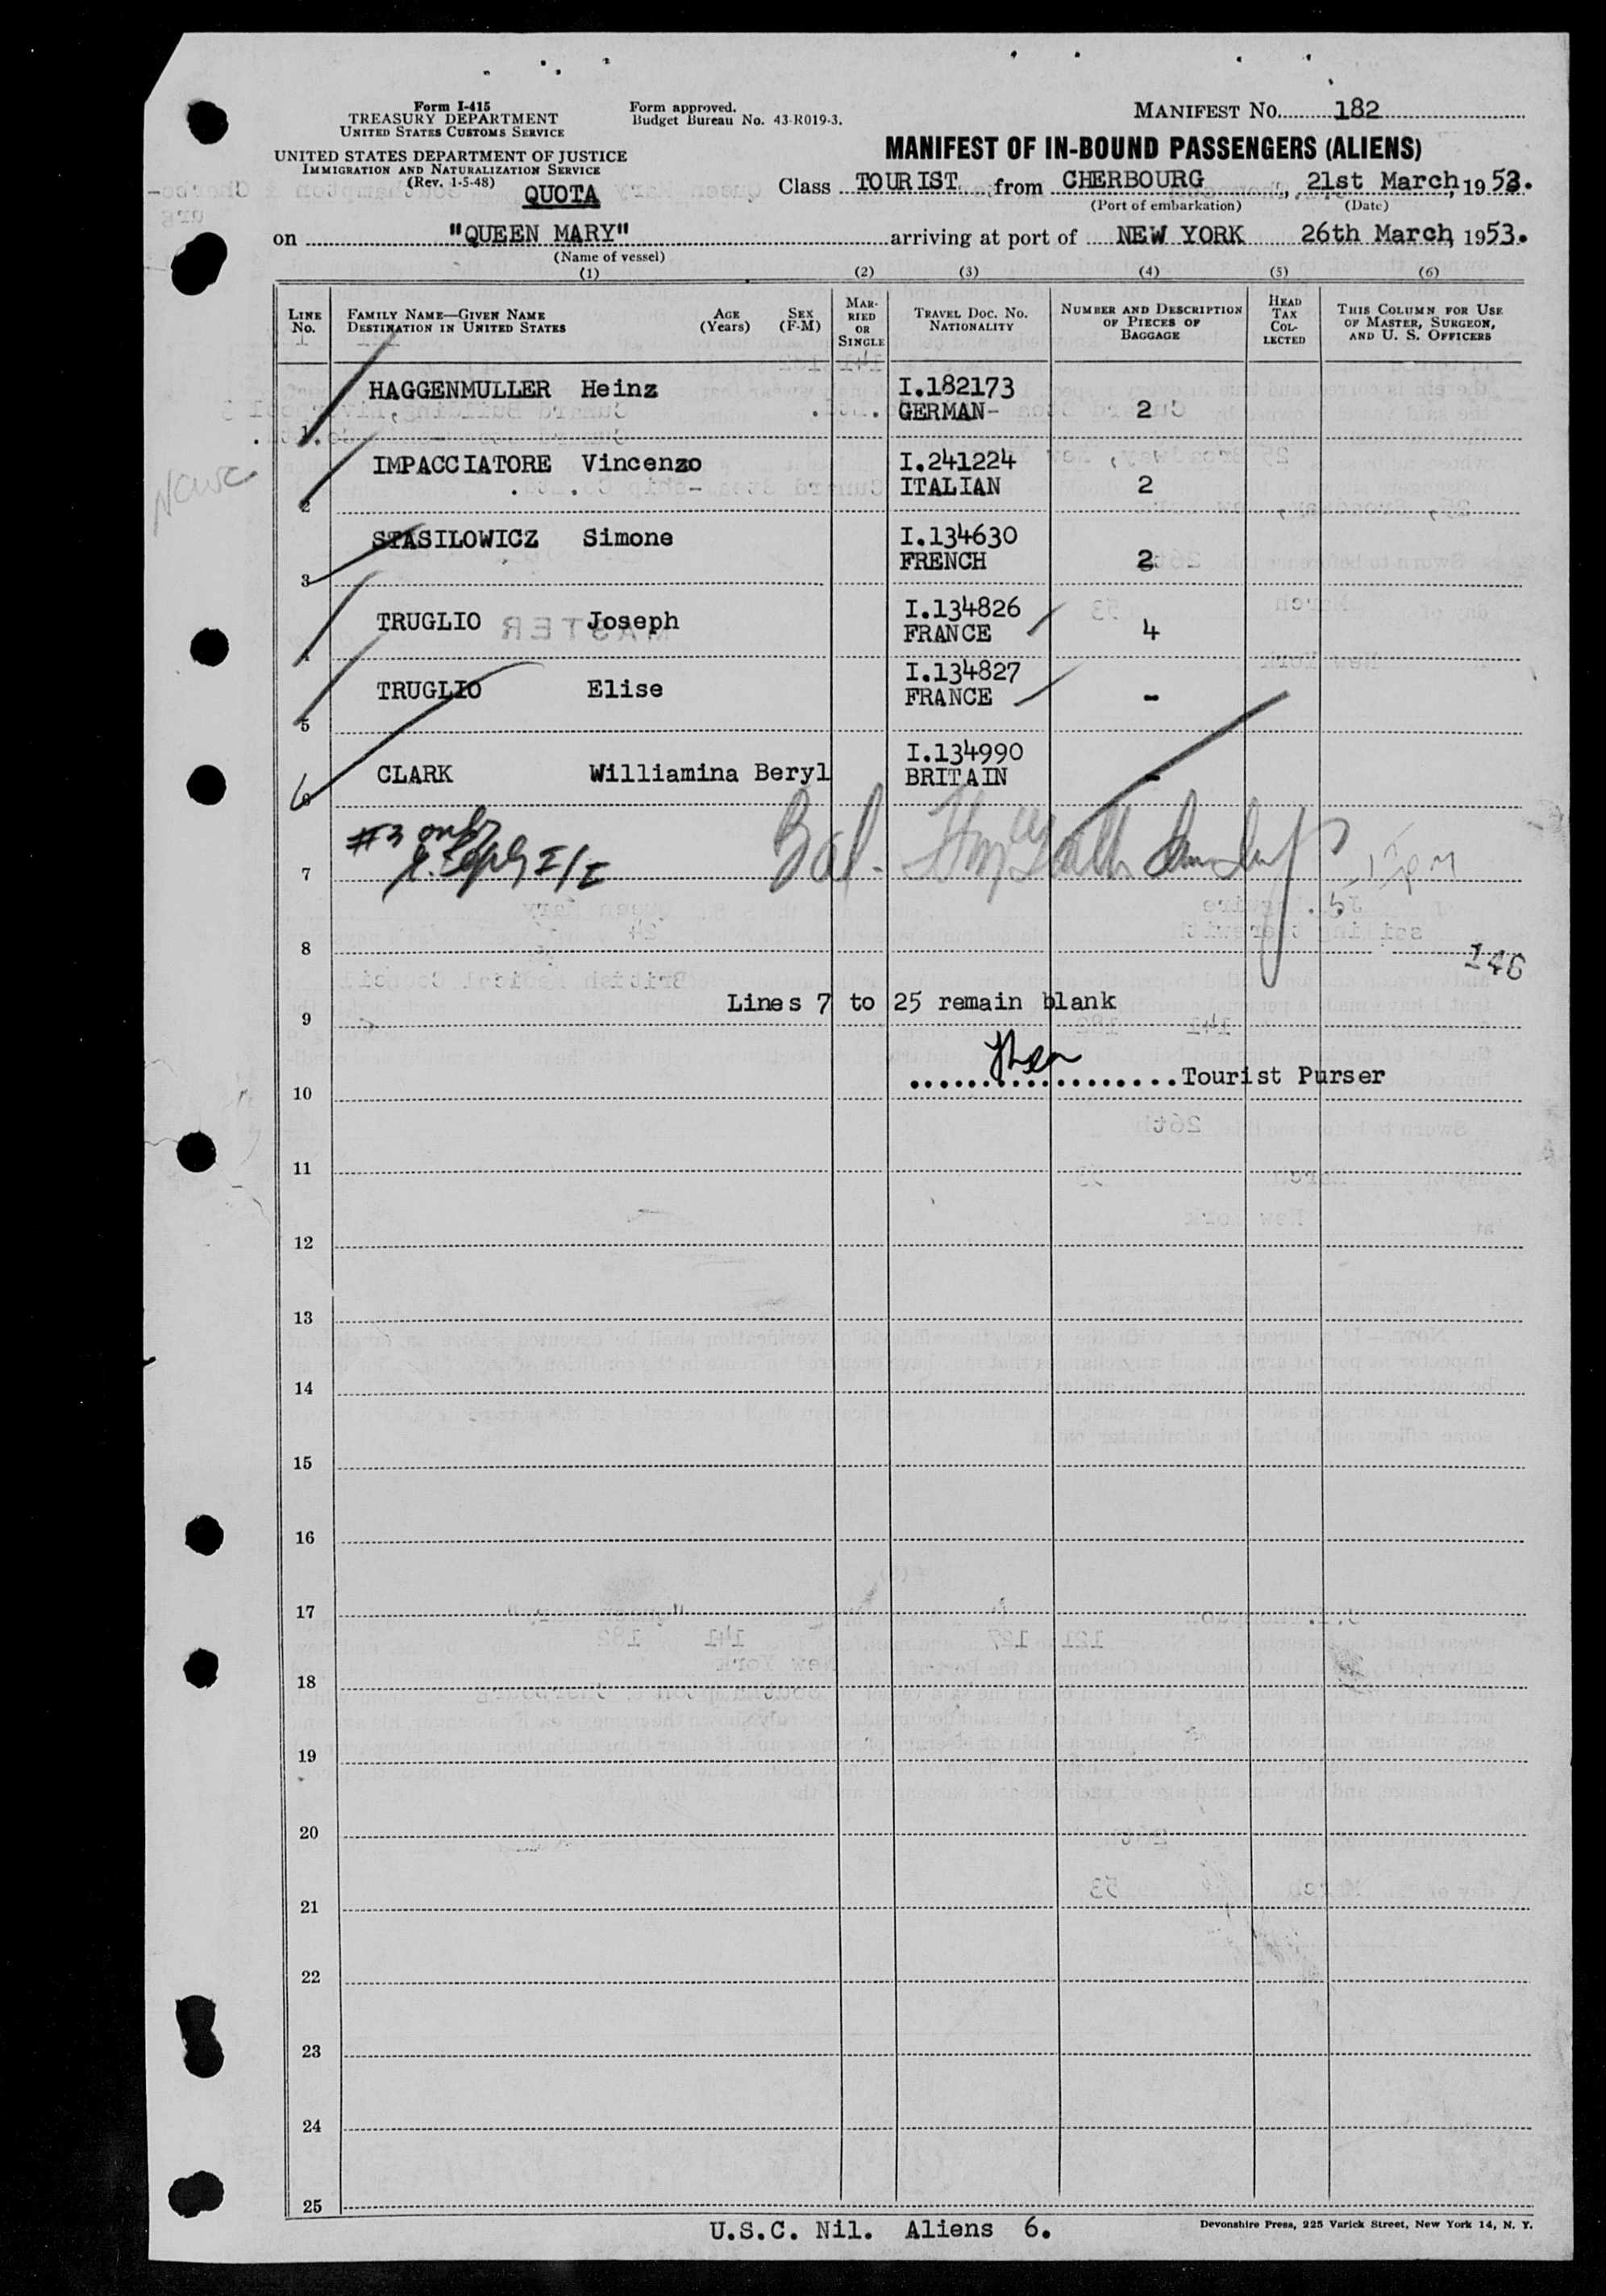 Form I-415
TREASURY DEPARTMENT
UNITED STATES CUSTOMS SERVICE
UNITED STATES DEPARTMENT OF JUSTICE
IMMIGRATION AND NATURALIZATION SERVICE
(Rev. 1-5-48)
QUOTA
Form approved.
Budget Bureau No. 43-R019-3.
MANIFEST NO. 182
MANIFEST OF IN-BOUND PASSENGERS (ALIENS)
Class TOURIST from CHERBOURG, 21st March, 1953.
(Port of embarkation) (Date)
on "QUEEN MARY" arriving at port of NEW YORK 26th March, 1953.
(Name of vessel)
(1) (2) (3) (4) (5) (6)
LINE No.
FAMILY NAME—GIVEN NAME
DESTINATION IN UNITED STATES
AGE (Years)
SEX (F-M)
MARRIED OR SINGLE
TRAVEL DOC. NO.
NATIONALITY
NUMBER AND DESCRIPTION OF PIECES OF BAGGAGE
HEAD TAX COLLECTED
THIS COLUMN FOR USE OF MASTER, SURGEON, AND U. S. OFFICERS
1 HAGGENMULLER Heinz I.182173
GERMAN- 2
2 IMPACCIATORE Vincenzo I.241224
ITALIAN 2
3 STASILOWICZ Simone I.134630
FRENCH 2
4 TRUGLIO Joseph I.134826
FRANCE 4
5 TRUGLIO Elise I.134827
FRANCE -
6 CLARK Williamina Beryl I.134990
BRITAIN -
#3 only
I/I
7
8
146
Lines 7 to 25 remain blank
9
..................Tourist Purser
10
11
12
13
14
15
16
17
18
19
20
21
22
23
24
25
U.S.C. Nil. Aliens 6.
Devonshire Press, 225 Varick Street, New York 14, N. Y.